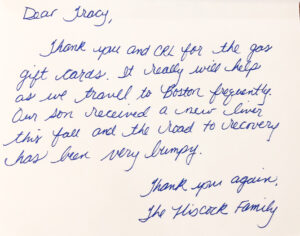 Dear Tracy,
Thank you and CRL for the gas
gift cards. It really will help
as we travel to Boston frequently.
Our son received a new liver
this fall and the road to recovery
has been very bumpy.
Thank you again,
The Hiscock Family